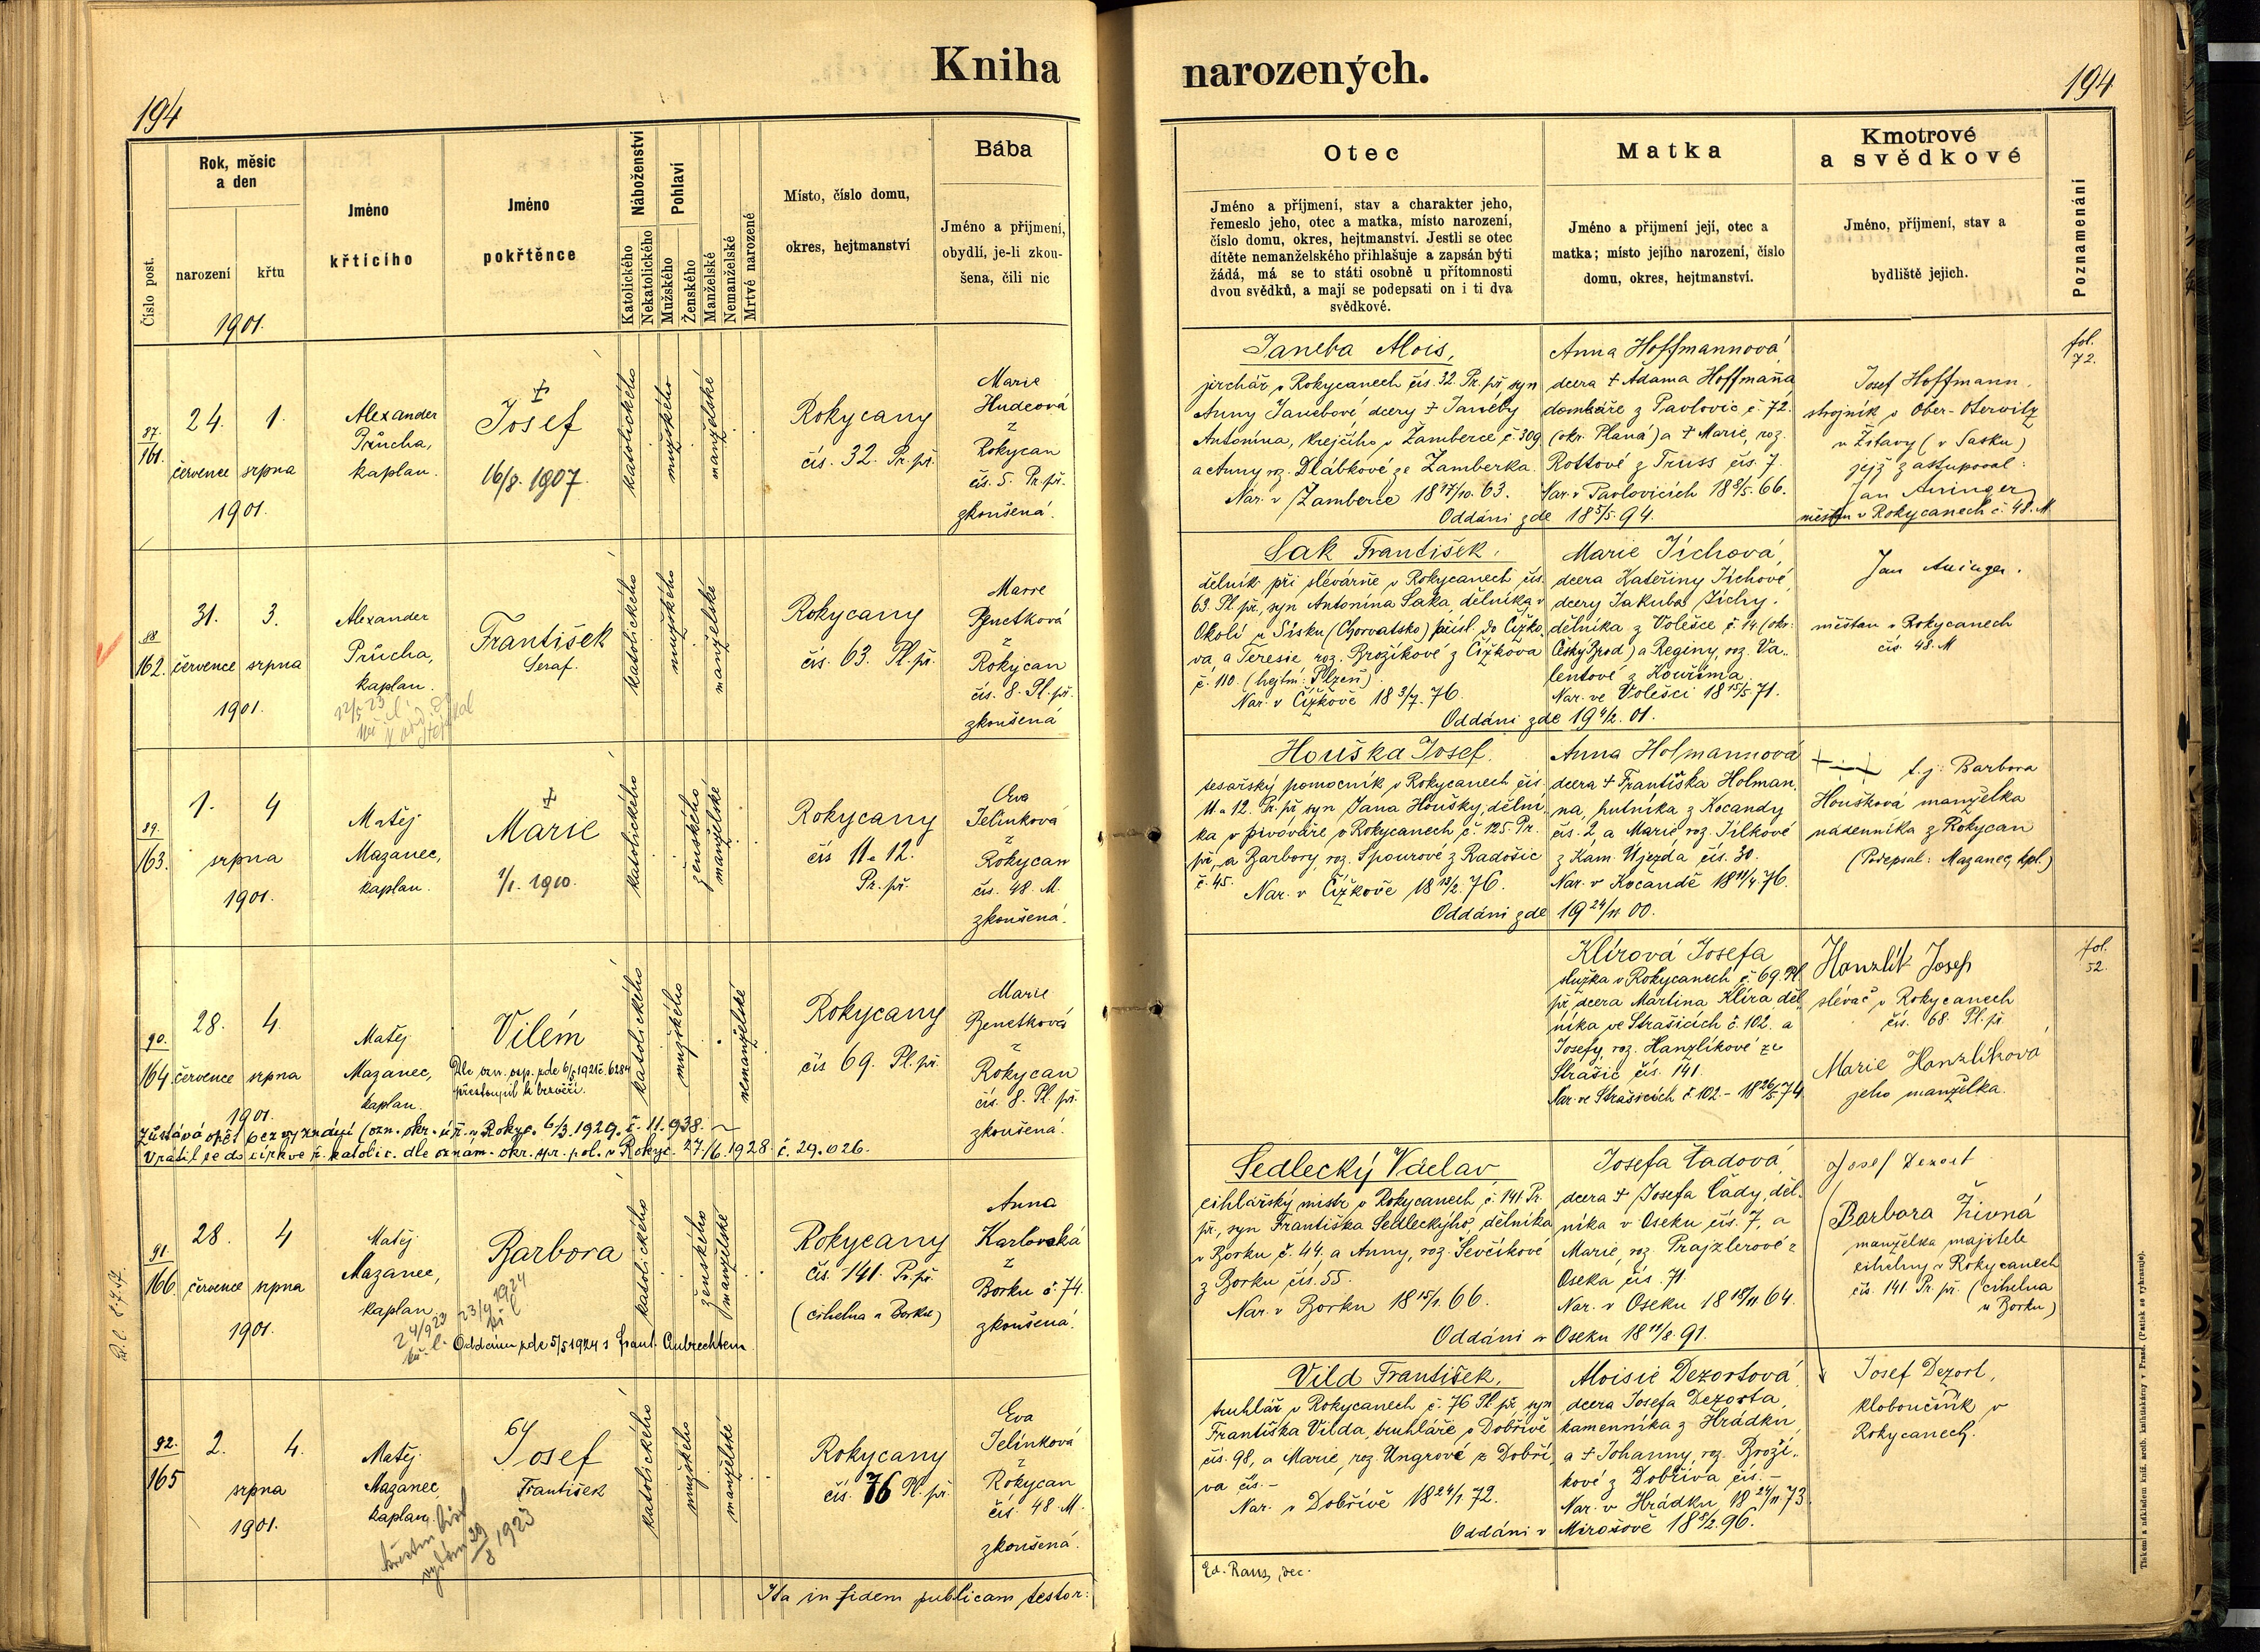 Kniha
194
Číslo post.
Rok, měsíc
a den
narození
křtu
1901.
Jméno
křticího
Jméno
pokřtěnce
Náboženství
Katolického
Nekatolického
Pohlaví
Mužského
Ženského
Manželské
Nemanželské
Mrtvě narozené
Místo, číslo domu,
okres, hejtmanství
Bába
Jméno a přijmení,
obydlí, je-li zkou-
šena, čili nic
87.
161.
24.
července
1.
srpna
1901.
Alexander
Průcha,
kaplan.
Josef
16/8. 1907.
katolického
mužského
manželské
Rokycany
čís. 32. Pr. př.
Marie
Hudcová
z
Rokycan
čís. 5. Pr. př.
zkoušená.
88
162.
31.
července
3.
srpna
1901.
Alexander
Průcha,
kaplan.
12/5 23
František
Seraf.
katolického
mužského
manželské
Rokycany
čís. 63. Pl. př.
Marie
Benetková
z
Rokycan
čís. 8. Pl. př.
zkoušená
89.
163.
1.
4
srpna
1901.
Matěj
Mazanec,
kaplan.
Marie
1/1. 1910.
katolického
ženského
manželské
Rokycany
čís 11 a 12.
Pr. př.
Eva
Jelínková
z
Rokycan
čís. 48. M.
zkoušená.
90.
164.
28.
července
4.
srpna
1901.
Matěj
Mazanec,
kaplan.
Vilém
Dle ozn. osp. zde 6/5 1921 č. 6284
přestoupil k bezvěří.
katolického
mužského
nemanželské
Rokycany
čís 69. Pl. př.
Marie
Benetková
z
Rokycan
čís. 8. Pl. př.
zkoušená.
Zůstává opět bez vyznání (ozn. okr. úř. v Rokyc. 6/3. 1929. č. 11.938.
Vrátil se do církve ř. katolic. dle oznám. okr. spr. pol. v Rokyc. 27./6. 1928. č. 29.026.
91.
166.
28.
července
4
srpna
1901.
Matěj
Mazanec,
kaplan.
24/9 23
Barbora
23/4 1924
Oddána zde 5/5 1924 s Frant. Aubrechtem
katolického
ženského
manželské
Rokycany
čís. 141. Pr. př.
(cihelna u Borku)
Anna
Karlovská
z
Borku č. 74.
zkoušená.
92.
165
2.
4.
srpna
1901.
Matěj
Mazanec,
kaplan.
křestní list
vydán 29/8 1923
64
Josef
František
katolického
mužského
manželské
Rokycany
čís. 76 Pl. př.
Eva
Jelínková
z
Rokycan
čís. 48 M.
zkoušená.
Ita in fidem publicam testor:
narozených.
194
Otec
Jméno a příjmení, stav a charakter jeho,
řemeslo jeho, otec a matka, místo narození,
číslo domu, okres, hejtmanství. Jestli se otec
dítěte nemanželského přihlašuje a zapsán býti
žádá, má se to státi osobně u přítomnosti
dvou svědků, a mají se podepsati on i ti dva
svědkové.
Matka
Jméno a přijmení její, otec a
matka; místo jejího narození, číslo
domu, okres, hejtmanství.
Kmotrové
a svědkové
Jméno, příjmení, stav a
bydliště jejich.
Poznamenání
Janeba Alois,
jirchář v Rokycanech čís. 32. Pr. př. syn
Anny Janebové dcery † Janeby
Antonína, krejčího v Žamberce č. 309
a Anny roz. Dlábkové ze Žamberka.
Nar. v Žamberce 18 17/10. 63.
Anna Hoffmannová,
dcera † Adama Hoffmaňa
domkáře z Pavlovic č. 72.
(okr. Planá) a † Marie, roz.
Rottové z Truss čís. 7.
Nar. v Pavlovicích 18 8/5. 66.
Oddáni zde 18 5/5. 94.
Josef Hoffmann,
strojník v Ober-Oterwitz
u Žitavy (v Sasku)
jejž zastupoval:
Jan Auinger
měšťan v Rokycanech č. 48. M
fol.
72.
Sak František,
dělník při slévárně v Rokycanech čís.
63. Pl. př., syn Antonína Saka, dělníka v
Okolí u Sisku (Chorvatsko) přísl. do Čížko-
va, a Teresie roz. Brožíkové z Čížkova
č. 110. (hejtm: Plzeň).
Nar. v Čížkově 18 3/7. 76.
Marie Jíchová,
dcera Kateřiny Jíchové
dcery Jakuba Jíchy,
dělníka z Volešce č. 14 (okr:
Český Brod) a Reginy, roz. Va-
lentové z Kouřima.
Nar. ve Volešci 18 15/5. 71.
Oddáni zde 19 4/2. 01.
Jan Auinger.
měšťan v Rokycanech
čís. 48. M
Houška Josef,
tesařský pomocník v Rokycanech čís.
11 a 12. Pr. př. syn Jana Houšky, dělní-
ka v pivováře v Rokycanech č. 125. Pr.
př., a Barbory, roz. Spourové z Radošic
č. 45.
Nar. v Čížkově 18 13/2. 76.
Anna Holmannová
dcera † Františka Holman-
na, hutníka z Kocandy
čís. 2 a Marie roz. Jílkové
z Kam. Újezda čís. 30.
Nar. v Kocandě 18 11/4. 76.
Oddáni zde 19 24/11 00.
+ - + t. j. Barbora
Houšková manželka
nádenníka z Rokycan
(Podepsal: Mazanec, kpl.)
Klírová Josefa
služka v Rokycanech č. 69. Pl.
př. dcera Martina Klíra děl-
níka ve Strašicích č. 102. a
Josefy, roz. Hanzlíkové ze
Strašic čís. 141.
Nar. ve Strašicích č. 102 - 18 26/5 74
Hanzlík Josef
slévač v Rokycanech
čís. 68. Pl. př.
Marie Hanzlíková
jeho manželka.
fol.
52.
Sedlecký Václav
cihlářský mistr v Rokycanech č. 141. Pr.
př., syn Františka Sedleckýho, dělníka
v Borku č. 44, a Anny, roz. Ševčíkové
z Borku čís. 55.
Nar. v Borku 18 15/1. 66.
Josefa Čadová,
dcera † Josefa Čady, děl-
níka v Oseku čís. 7, a
Marie, roz. Prajzlerové z
Oseka, čís. 71
Nar. v Oseku 18 18/11 64.
Oddáni v Oseku 18 11/8. 91.
Josef Dezort
Barbara Živná
manželka majitele
cihelny v Rokycanech
čís. 141. Pr. př. (cihelna
u Borku)
Vild František,
truhlář v Rokycanech č. 76 Pl. př. syn
Františka Vilda, truhláře v Dobřívě
čís. 98, a Marie, roz. Ungrové z Dobří-
va čís. -
Nar. v Dobřívě 18 24/1. 72.
Aloisie Dezortová,
dcera Josefa Dezorta,
kamenníka z Hrádku,
a † Johanny, roz. Broží-
kové z Dobříva čís. -
Nar. v Hrádku, 18 24/11. 73.
Oddáni v Mirošově 18 8/2. 96.
Josef Dezort,
kloboučník v
Rokycanech.
Ed. Rauz, dec.
Tiskem a nákladem kníž. arcib. knihtiskárny v Praze. (Patisk se vyhrazuje).